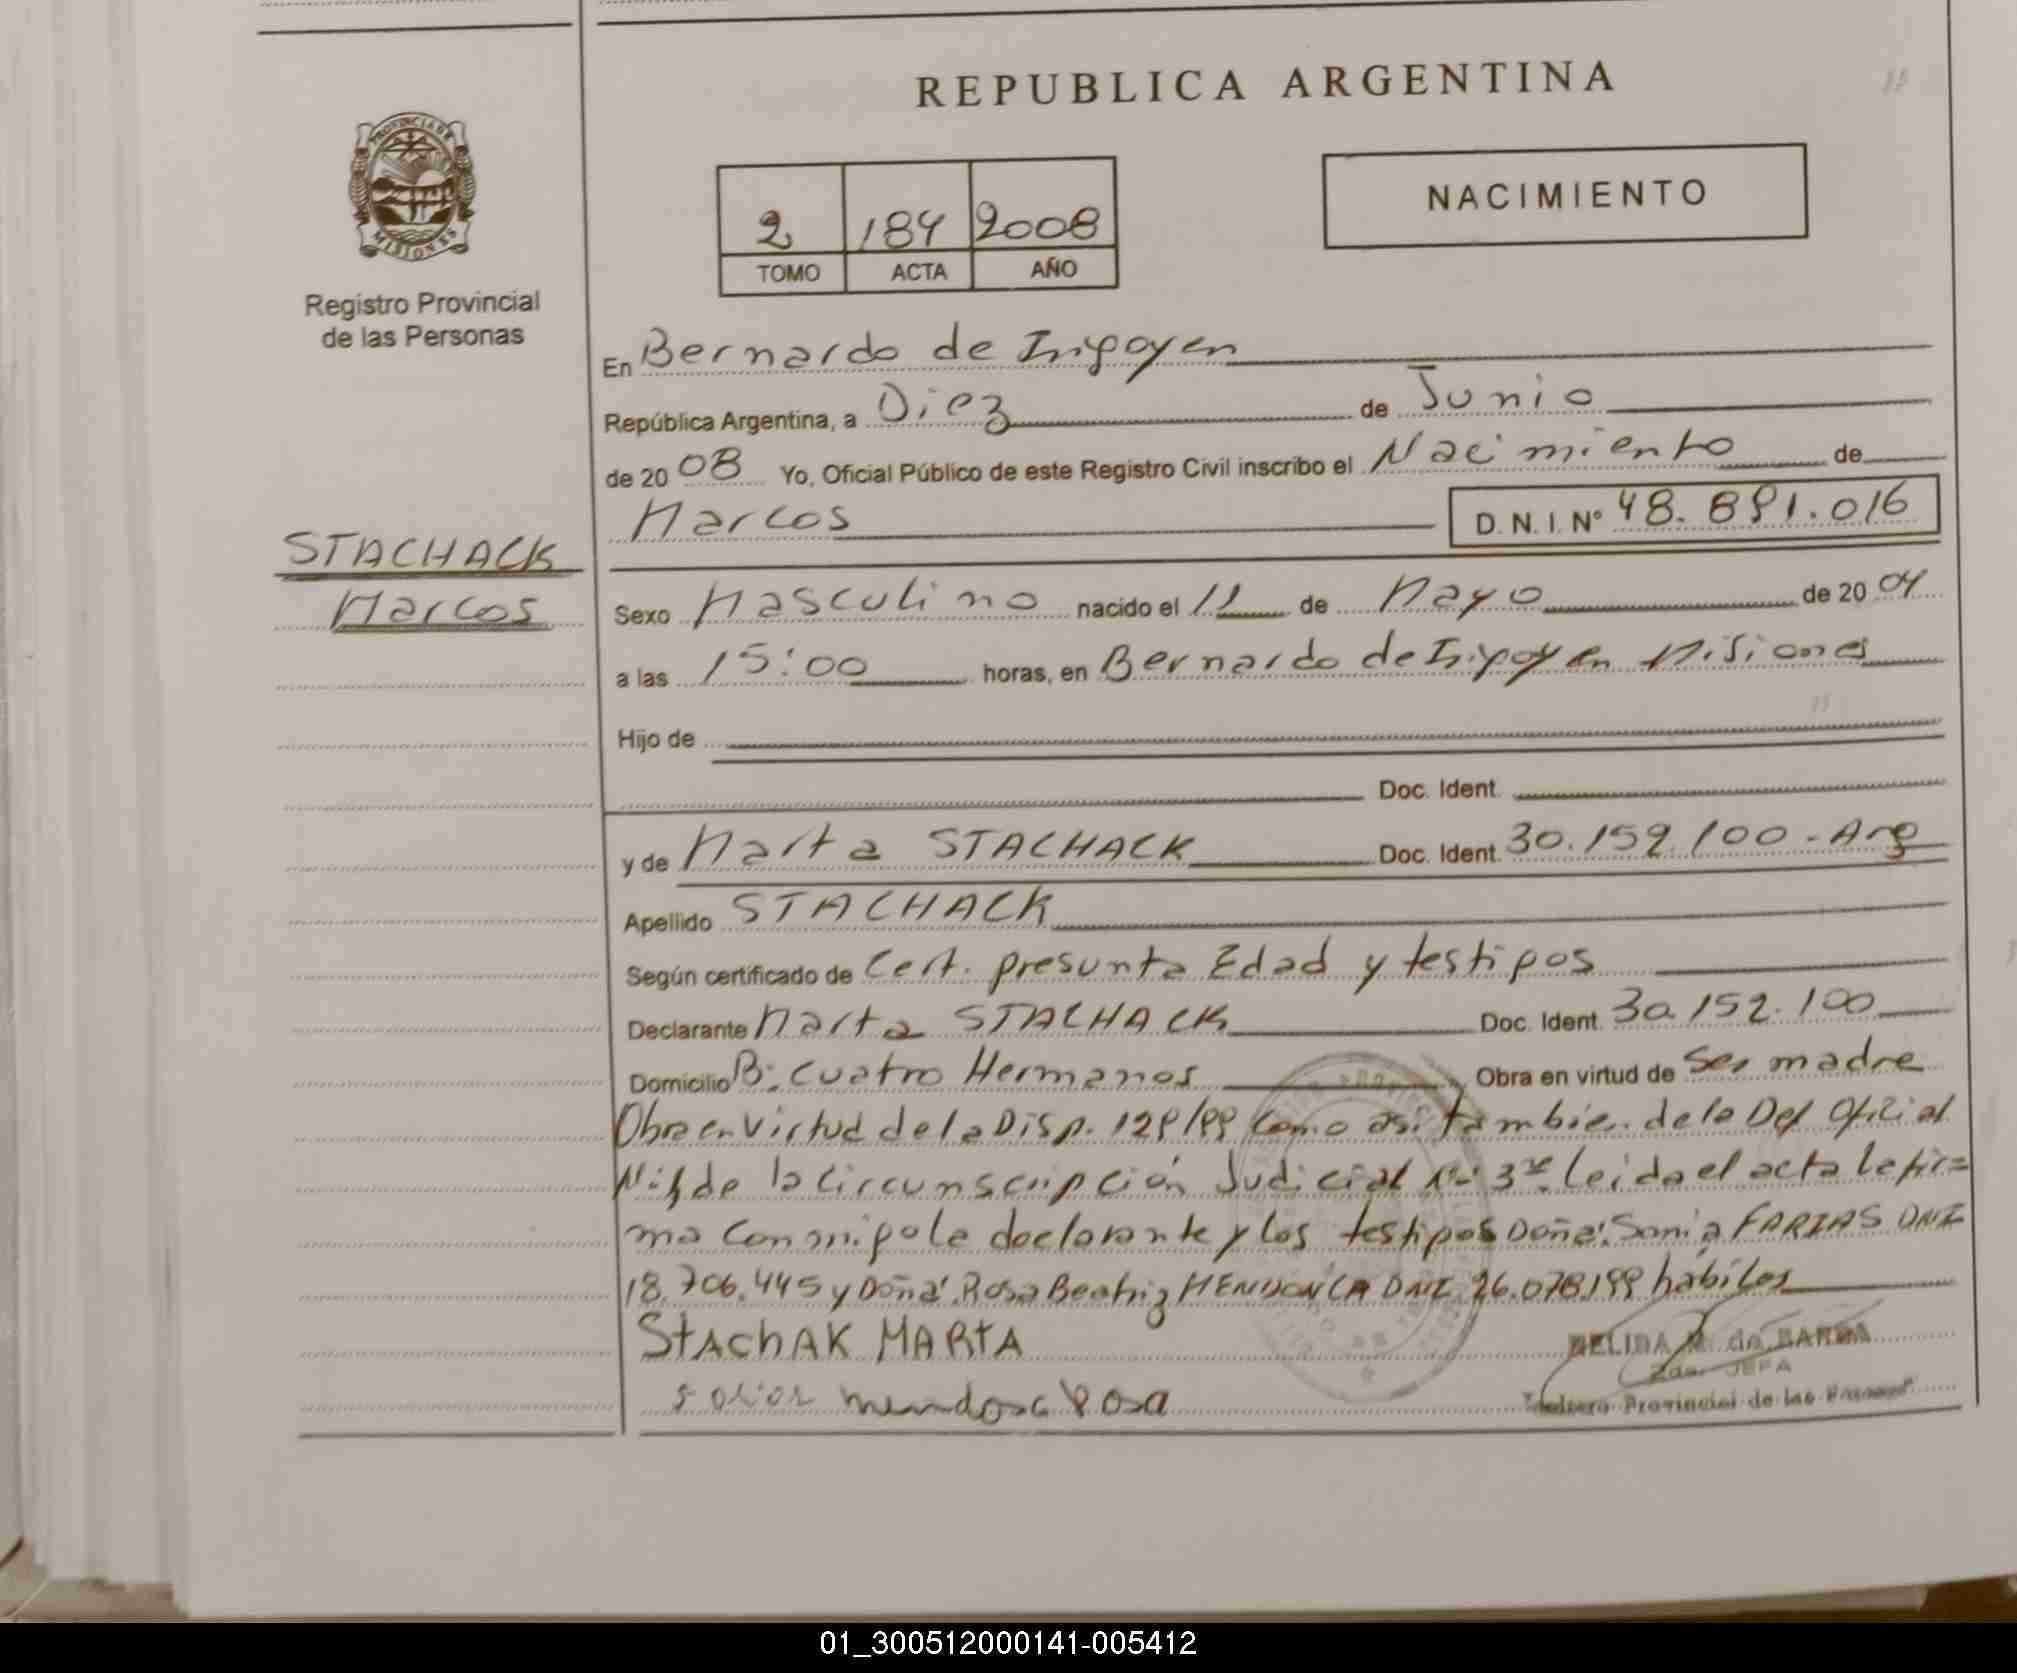 REPUBLICA ARGENTINA
PROVINCIA DE
MISIONES
Registro Provincial
de las Personas
NACIMIENTO
2 184 2008
TOMO ACTA AÑO
En Bernardo de Irigoyen
República Argentina, a Diez de Junio
de 20 08 Yo, Oficial Público de este Registro Civil inscribo el Nacimiento de
Marcos D. N. I. N° 48.891.016
STACHACK
Marcos
Sexo Masculino nacido el 11 de Mayo de 20 04
a las 15:00 horas, en Bernardo de Irigoyen Misiones
Hijo de
Doc. Ident.
y de Marta STACHACK Doc. Ident. 30.152.100 - Arg
Apellido STACHACK
Según certificado de Cert. presunta Edad y testigos
Declarante Marta STACHACK Doc. Ident. 30.152.100
Domicilio B: Cuatro Hermanos Obra en virtud de Ser madre
Obra en Virtud de la Disp. 129/99 Como asi tambien de la Def Oficial
de la Circunscripción Judicial N° 3ra. Leida el acta la fir=
ma conmigo la declarante y los testigos Doña: Sonia FARIAS DNI
18.706.445 y Doña: Rosa Beatriz MENDONCA DNI 26.078.199 habiles
StAchAK MARtA
mendosa Rosa
DELIDA M. de
2da. JEFA
Provincial de las
01_300512000141-005412